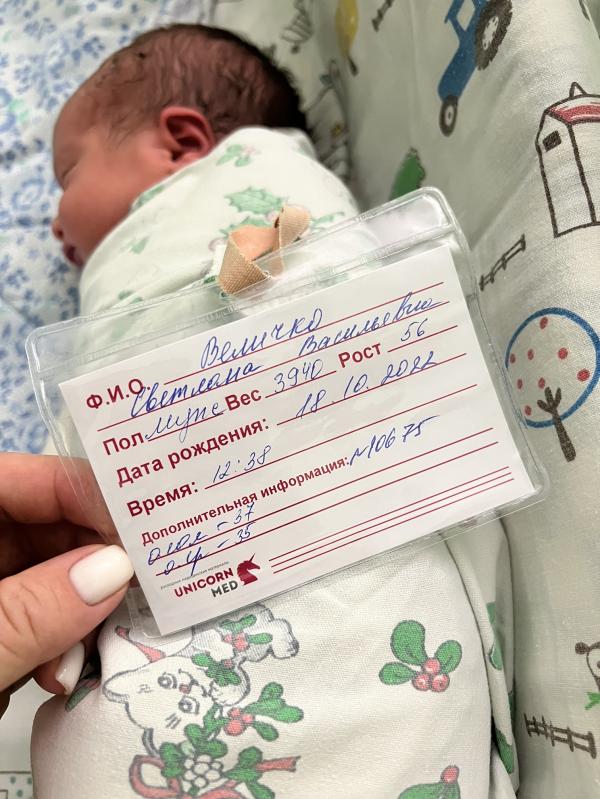 Величко
Ф.И.О. Светлана Васильевна
Пол муж Вес 3940 Рост 56
Дата рождения: 18.10.2022
Время: 12:38
Дополнительная информация: №10675
огол - 37
огр - 35
расходные медицинские материалы
UNICORN
MED